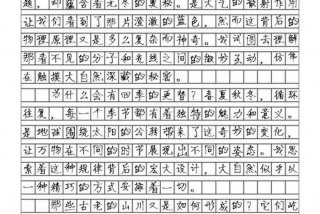 题，却蕴含着无尽的奥秘。是大气的散射作用
让我们看到了那片澄澈的蓝色，然而这背后的
物理原理又是多么复杂而神奇。我试图去理解
那看不见的分子与光线之间的微妙互动，仿佛
在触摸大自然深藏的秘密。
为什么会有四季的更替？春夏秋冬，循环
往复，每一个季节都有着独特的魅力和意义。
是地球围绕太阳的公转带来了这奇妙的变化，
让万物在不同的时节展现出不同的姿态。我思
索着这种规律背后的宏大设计，大自然似乎以
一种精巧的方式安排着一切。
那些古老的山川又是如何形成的？它们屹